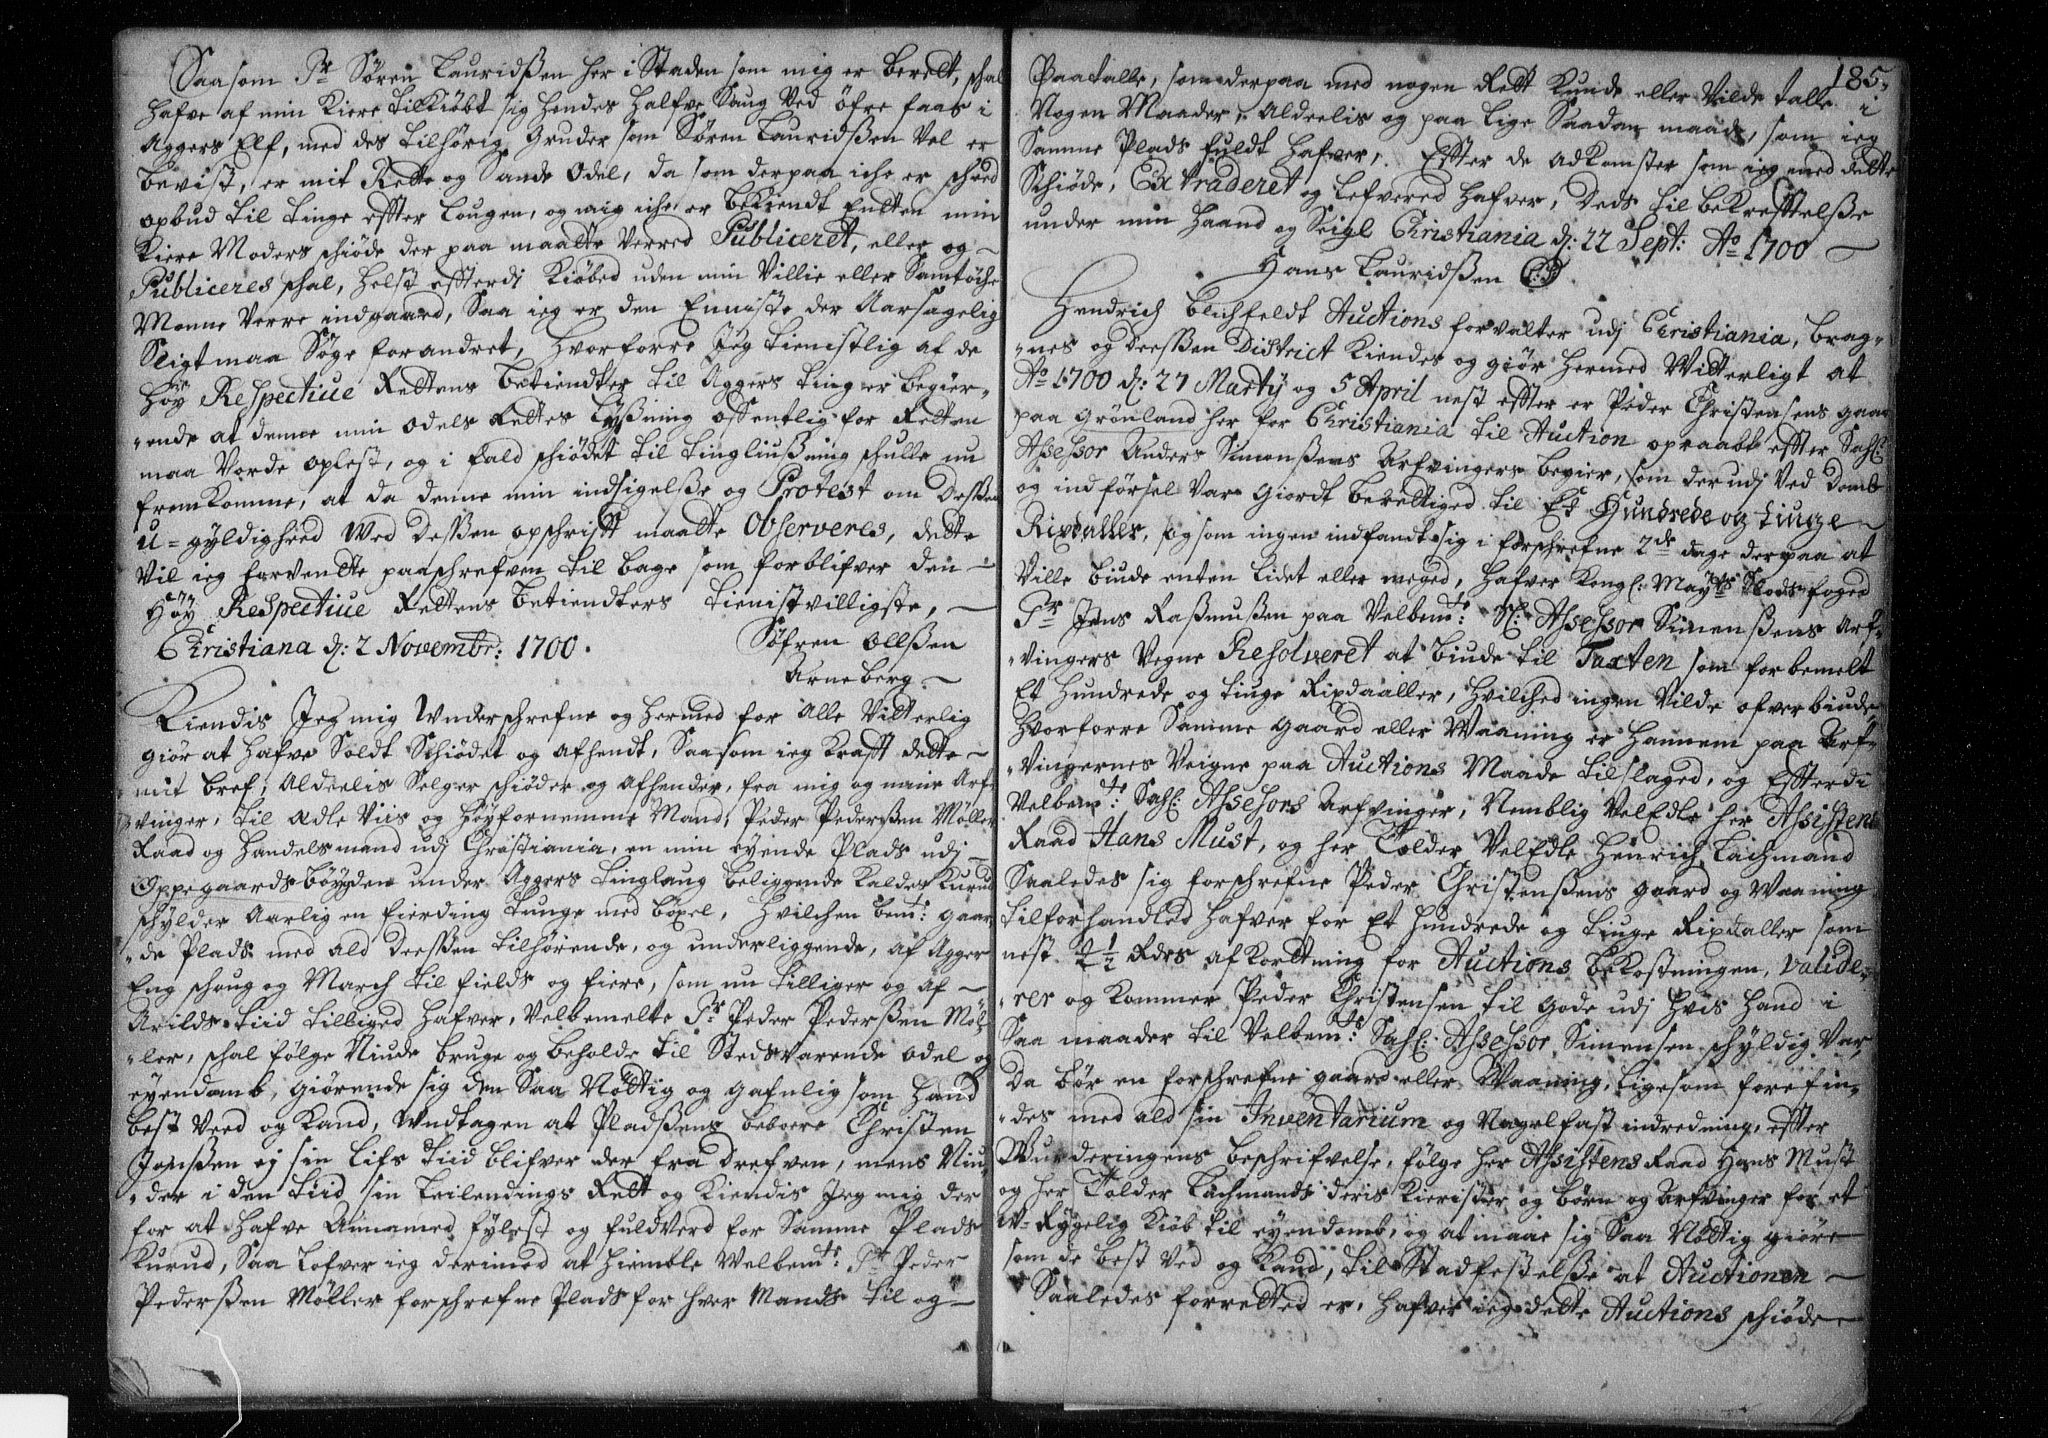 Saasom Sr Søren Lauridßen her i Staden som mig er berett, schal
hafve af min Kiere tilkiøbt sig hendes halfve Saug Ved öfre faas i
Aggers Elf, med des tilhörig Gruder som Søren Lauridßen Vel er
bevist, er mit Rette og Sande Odel, da som derpaa iche er scheed
opbud til tinge effter Lougen, og mig iche er bekiendt Endten min
Kiere Moders schiöde der paa maatte Verred Publiceret, eller og
Publiceres schal, helst effterdj Kiöbed uden min Villie eller Samtöche
Monne Verre indgaaed, Saa ieg er den Enniste der Aarsagelig
Sligt maa Söge forandret, hvorforre Jeg tienistlig af de
Höy Respective Rettens betiendter til Aggers ting er begier-
ende at denne min odels Rettes Lyßning offentlig for Retten
maa Vorde oplest, og i fald schiödet til tingliußning schulle nu
fremkomme, at da denne min indsigelße og Protest om deßen
u-gyldigheed Ved deßen opschrifft maatte Observeres, dette
Vil ieg forvendte paaschrefven til bage som forblifver den
Höy Respective Rettens betiendters tienistvilligste,
Christiana d: 2 Novembr: 1700. Söfren Olleßen
Arneberg
Kiendis Jeg mig Underschrefne og hermed for Alle Vitterlig
giör at hafve Soldt Schiödet og afhendt, Saasom ieg Krafft dette
mit bref, Aldeelis Selger schiöder og afhender, fra mig og mine Arf
vinger, til Ædle Viis og Höyfornemme Mand, Peder Pederßen Möller
Raad og Handelsmand udj Christiania, en min eyende Plads udj
Oppegaardsbøygden under Aggers tinglaug beliggende kaldes Kurud
schylder Aarlig en fierding tunge med böxel, hvilchen bemte: gaar
de Plads med ald deeßen tilhörende, og underliggende, af Agger
Eng schoug og March til fields og fiere, som nu tilliger og af
Arilds tiid tilliged hafver, Velbemelte Sr Peder Pederßen Möl
ler, schal fölge Niude bruge og beholde til Stedsvarende odel og
eyendomb, giörende sig den Saa Nöttig og gafnlig som hand
best Veed og Kand, Undtagen at Pladßens beboere Christen
Jonßen ej sin Lifs tiid blifver der fra drefven, mens Niu
der i den tiid sin Leilendings Rett og Kiendis Jeg mig der
for at hafve Annamed fylest og fuldverd for Samme Plads
Kurud, Saa Lofver ieg derimod at hiemble Velbemte: Sr Peder
Pederßen Möller forschrefne Plads for hver Mands til og
185.
Paatalle, som derpaa med nogen Rett Kunde eller Vilde talle i
Nogen Maader, Aldeelis og paa lige Saadan maade, som ieg
Samme Plads fuldt hafver, Effter de adkomster som ieg med dette
Schiöde, Extraderet og Lefvered hafver, Deds til bekrefftelße
under min haand og Seigl Christiania d: 22 Sept: Ao 1700
Hans Lauridßen
Hendrich Blichfeldt Auctions forvalter udj Christiania, Brag-
nes og deeßen District Kiendes og giör hermed Vitterligt at
Ao 1700 d: 27 Martÿ og 5 April nest effter er Peder Christensens gaar
paa Grönland her for Christiania til Auction opraabt effter Sahl:
Assessor Anders Simenßens Arfvingers begier, som der udj Ved domb
og indförsel Var giordt berettiged til Et Hundrede og tiuge
Rixdaller, og som ingen indfandt sig i forschrefne 2de dage derpaa at
Ville biude enten lidet eller meged, hafver Kongl: Mayts Slodsfoged
Sr Jens Raßmußen paa Velbemte: Sl: Assessor Simenßens Arf-
vingers Vegne Resolveret at biude til Taxten som forbemelt
Et hundrede og tiuge Rixdaaller, hvilched ingen Vilde ofverbiude
hvorforre Samme gaard eller Waaning er hannem paa Arf-
vingernes Veigne paa Auctions Maade tilslaged, og Effterdi
Velbemte: Sahl: Assessors Arfvinger, Nemblig VelEdle her Assistens
Raad Hans Must, og her Tolder VelEdle Hinrich Lachmand
Saaledes sig forschrefne Peder Christenßens gaard og Waaning
tilforhandled hafver for Et hundrede og tiuge Rixdaller som
nest Rdrs afkortning for Auctions bekostningen, valide-
rer og kommer Peder Christensen til gode udj hvis hand i
Saa maader til Velbemte: Sahl: Assessor Simensen schyldig Var,
Da bör en forschrefne gaard eller Waaning, ligesom forefin-
des med ald sin Inventarium og Nagelfast indredning, effter
Wurderingens beschrifvelse, fölge her Assistens Raad Hans Must
og her Tolder Lachmand, deris Kierister og börn og Arfvinger for et
U-Rygelig Kiöb til eyendomb, og at maae sig Saa Nöttig giöre
som de best Ved og Kand, til Stadfestelße at Auctionen
Saaledes forretted er, hafver ieg dette Auctions schiöde